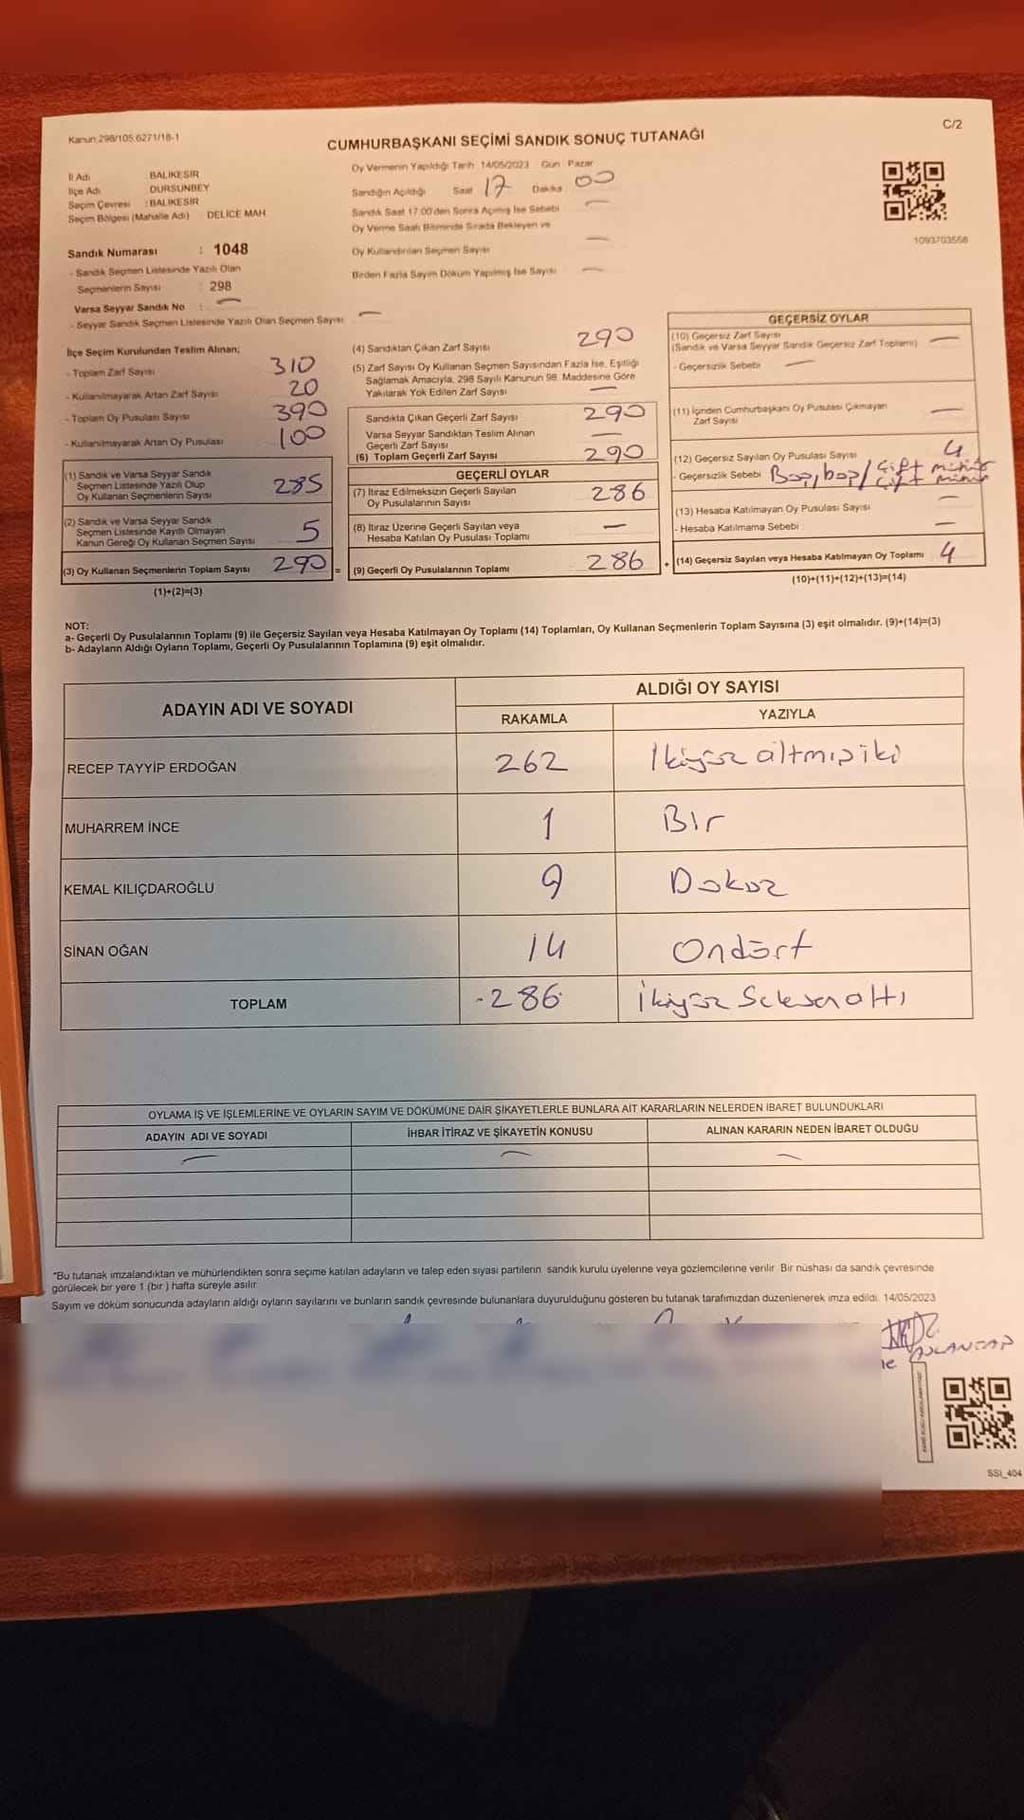 Kanun 298/105 6271/18-1
C/2
CUMHURBAŞKANI SEÇİMİ SANDIK SONUÇ TUTANAĞI
İl Adı BALIKESİR
İlçe Adı DURSUNBEY
Seçim Çevresi : BALIKESİR
Seçim Bölgesi (Mahalle Adı) DELİCE MAH
Oy Vermenin Yapıldığı Tarih 14/05/2023 Gün Pazar
Sandığın Açıldığı Saat 17 Dakika 00
Sandık Saat 17.00'den Sonra Açılmış İse Sebebi —
Oy Verme Saati Bitiminde Sırada Bekleyen ve
Oy Kullandırılan Seçmen Sayısı —
Birden Fazla Sayım Döküm Yapılmış İse Sayısı —
1093703558
Sandık Numarası : 1048
- Sandık Seçmen Listesinde Yazılı Olan
Seçmenlerin Sayısı 298
Varsa Seyyar Sandık No : —
- Seyyar Sandık Seçmen Listesinde Yazılı Olan Seçmen Sayısı —
İlçe Seçim Kurulundan Teslim Alınan;
- Toplam Zarf Sayısı 310
- Kullanılmayarak Artan Zarf Sayısı 20
- Toplam Oy Pusulası Sayısı 390
- Kullanılmayarak Artan Oy Pusulası 100
(1) Sandık ve Varsa Seyyar Sandık
Seçmen Listesinde Yazılı Olup
Oy Kullanan Seçmenlerin Sayısı 285
(2) Sandık ve Varsa Seyyar Sandık
Seçmen Listesinde Kayıtlı Olmayan
Kanun Gereği Oy Kullanan Seçmen Sayısı 5
(3) Oy Kullanan Seçmenlerin Toplam Sayısı 290 =
(1)+(2)=(3)
(4) Sandıktan Çıkan Zarf Sayısı 290
(5) Zarf Sayısı Oy Kullanan Seçmen Sayısından Fazla İse, Eşitliği
Sağlamak Amacıyla, 298 Sayılı Kanunun 98. Maddesine Göre
Yakılarak Yok Edilen Zarf Sayısı —
Sandıkta Çıkan Geçerli Zarf Sayısı 290
Varsa Seyyar Sandıktan Teslim Alınan
Geçerli Zarf Sayısı —
(6) Toplam Geçerli Zarf Sayısı 290
GEÇERLİ OYLAR
(7) İtiraz Edilmeksizin Geçerli Sayılan
Oy Pusulalarının Sayısı 286
(8) İtiraz Üzerine Geçerli Sayılan veya
Hesaba Katılan Oy Pusulası Toplamı —
(9) Geçerli Oy Pusulalarının Toplamı 286 +
GEÇERSİZ OYLAR
(10) Geçersiz Zarf Sayısı
(Sandık ve Varsa Seyyar Sandık Geçersiz Zarf Toplamı) —
- Geçersizlik Sebebi —
(11) İçinden Cumhurbaşkanı Oy Pusulası Çıkmayan
Zarf Sayısı —
(12) Geçersiz Sayılan Oy Pusulası Sayısı 4
- Geçersizlik Sebebi Boş, boş / çift mühür
çift mühür
(13) Hesaba Katılmayan Oy Pusulası Sayısı —
- Hesaba Katılmama Sebebi —
(14) Geçersiz Sayılan veya Hesaba Katılmayan Oy Toplamı 4
(10)+(11)+(12)+(13)=(14)
NOT:
a- Geçerli Oy Pusulalarının Toplamı (9) ile Geçersiz Sayılan veya Hesaba Katılmayan Oy Toplamı (14) Toplamları, Oy Kullanan Seçmenlerin Toplam Sayısına (3) eşit olmalıdır. (9)+(14)=(3)
b- Adayların Aldığı Oyların Toplamı, Geçerli Oy Pusulalarının Toplamına (9) eşit olmalıdır.
ADAYIN ADI VE SOYADI
ALDIĞI OY SAYISI
RAKAMLA YAZIYLA
RECEP TAYYİP ERDOĞAN 262 İkiyüz altmışiki
MUHARREM İNCE 1 Bir
KEMAL KILIÇDAROĞLU 9 Dokuz
SİNAN OĞAN 14 Ondört
TOPLAM -286- İkiyüz Seksen altı
OYLAMA İŞ VE İŞLEMLERİNE VE OYLARIN SAYIM VE DÖKÜMÜNE DAİR ŞİKAYETLERLE BUNLARA AİT KARARLARIN NELERDEN İBARET BULUNDUKLARI
ADAYIN ADI VE SOYADI İHBAR İTİRAZ VE ŞİKAYETİN KONUSU ALINAN KARARIN NEDEN İBARET OLDUĞU
— — —
*Bu tutanak imzalandıktan ve mühürlendikten sonra seçime katılan adayların ve talep eden siyasi partilerin sandık kurulu üyelerine veya gözlemcilerine verilir. Bir nüshası da sandık çevresinde
görülecek bir yere 1 (bir) hafta süreyle asılır.
Sayım ve döküm sonucunda adayların aldığı oyların sayılarını ve bunların sandık çevresinde bulunanlara duyurulduğunu gösteren bu tutanak tarafımızdan düzenlenerek imza edildi. 14/05/2023
SSI_404